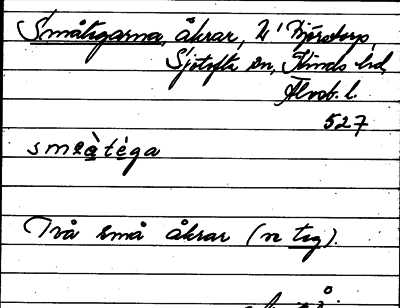 Småtegarna, åkrar, 2/1 Björstorp,
Sjötofta sn, Kinds hd,
Älvsb. l.
527
smeàtèga
Två små åkrar (n teg).